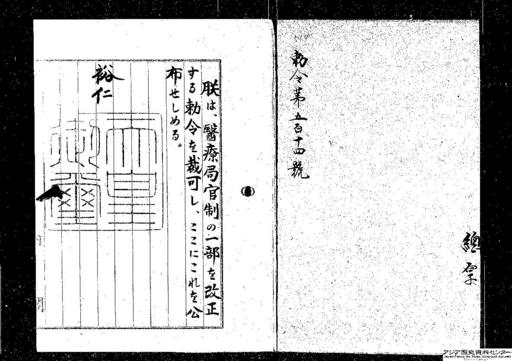 勅令第五百十四號
總
朕は、醫療局官制の一部を改正
する勅令を裁可し、ここにこれを公
布せしめる。
裕仁
アジア歴史資料センター